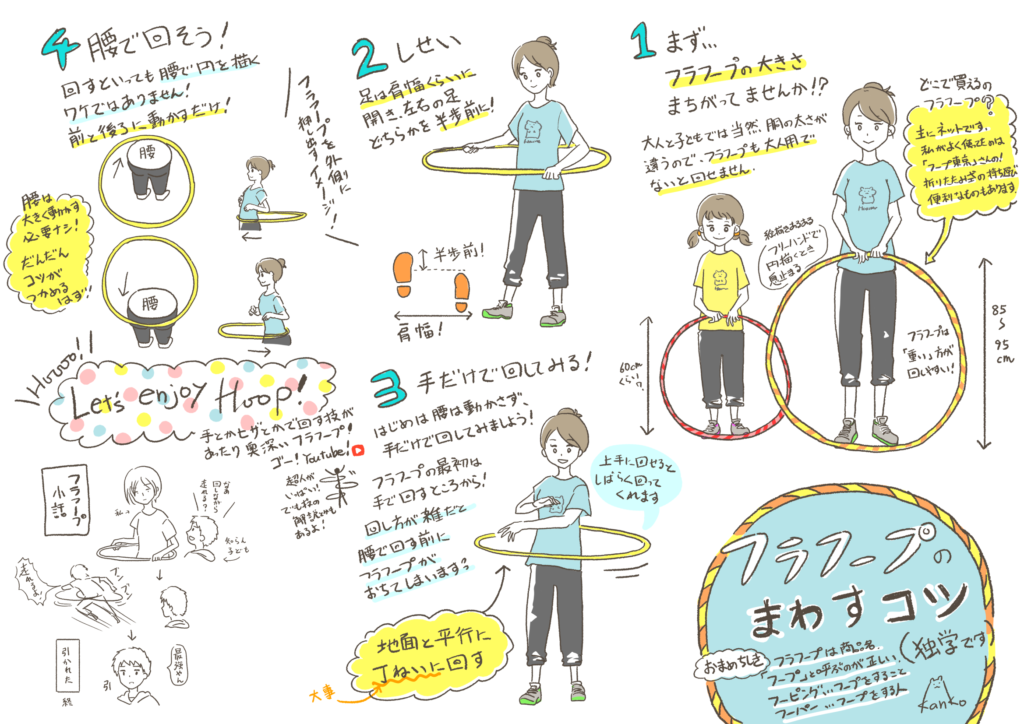 フラフープの
まわすコツ
(独学です)
おまめちしき
フラフープは商品名.
「フープ」と呼ぶのが正しい.
フーピング…フープをすること
フーパー…フープをする人
Kanko
1 まず…
フラフープの大きさ
まちがってませんか!?
大人と子どもでは当然、胴の太さが
違うので、フラフープも大人用で
ないと回せません.
どこで買えるの
フラフープ?
主にネットです.
私がよく使ってたのは
「フープ東京」さんの!
折りたたみ式の持ち運び
便利なものもあります
絵描きあるある
フリーハンドで
円描くとき
息止まる
60cm
くらい?
85
〜
95
cm
フラフープは
「重い」方が
回しやすい!
2 しせい
足は肩幅くらいに
開き、左右の足
どちらかを半歩前に!
半歩前!
肩幅!
3 手だけで回してみる!
はじめは腰は動かさず、
手だけで回してみましょう!
フラフープの最初は
手で回すところから!
回し方が雑だと
腰で回す前に
フラフープが
おちてしまいます?
上手に回せると
しばらく回って
くれます
地面と平行に
丁ねいに回す
大事
4 腰で回そう!
回すといっても腰で円を描く
ワケではありません!
前と後ろに動かすだけ!
フラフープを外側に
押し出すイメージ!
腰
腰
腰は
大きく動かす
必要ナシ!
だんだん
コツが
つかめる
はず!
Let's enjoy Hoop!
手とかヒザとかで回す技が
あったり奥深いフラフープ!
ゴー! Youtube!
超人が
いっぱい!
でも技の
解説も
あるよ!
フラフープ
小話
私→
なあ
回しながら
走れる?
知らん
子ども
走れるよ!
ブン
ブン
最強やん
引
引かれた
終